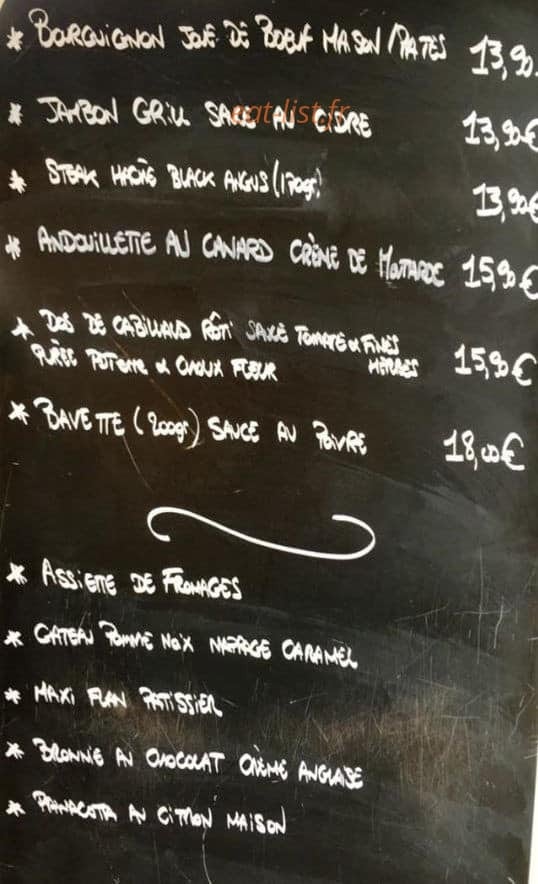 * BOURGUIGNON JOUE DE BOEUF MAISON / PATES 13,90
* JAMBON GRILL SAUCE AU CIDRE 13,90€
eat-list.fr
* STEAK HACHÉ BLACK ANGUS (170gr) 13,90€
* ANDOUILLETTE AU CANARD CRÈME DE MOUTARDE 15,90€
* DOS DE CABILLAUD RÔTI SAUCE TOMATE & FINES
PURÉE POTERRE & CHOUX FLEUR HERBES 15,90€
* BAVETTE (200gr) SAUCE AU POIVRE 18,00€
* ASSIETTE DE FROMAGES
* GATEAU POMME NOIX NAPPAGE CARAMEL
* MAXI FLAN PATISSIER
* BROWNIE AU CHOCOLAT CRÈME ANGLAISE
* PANNACOTTA AU CITRON MAISON